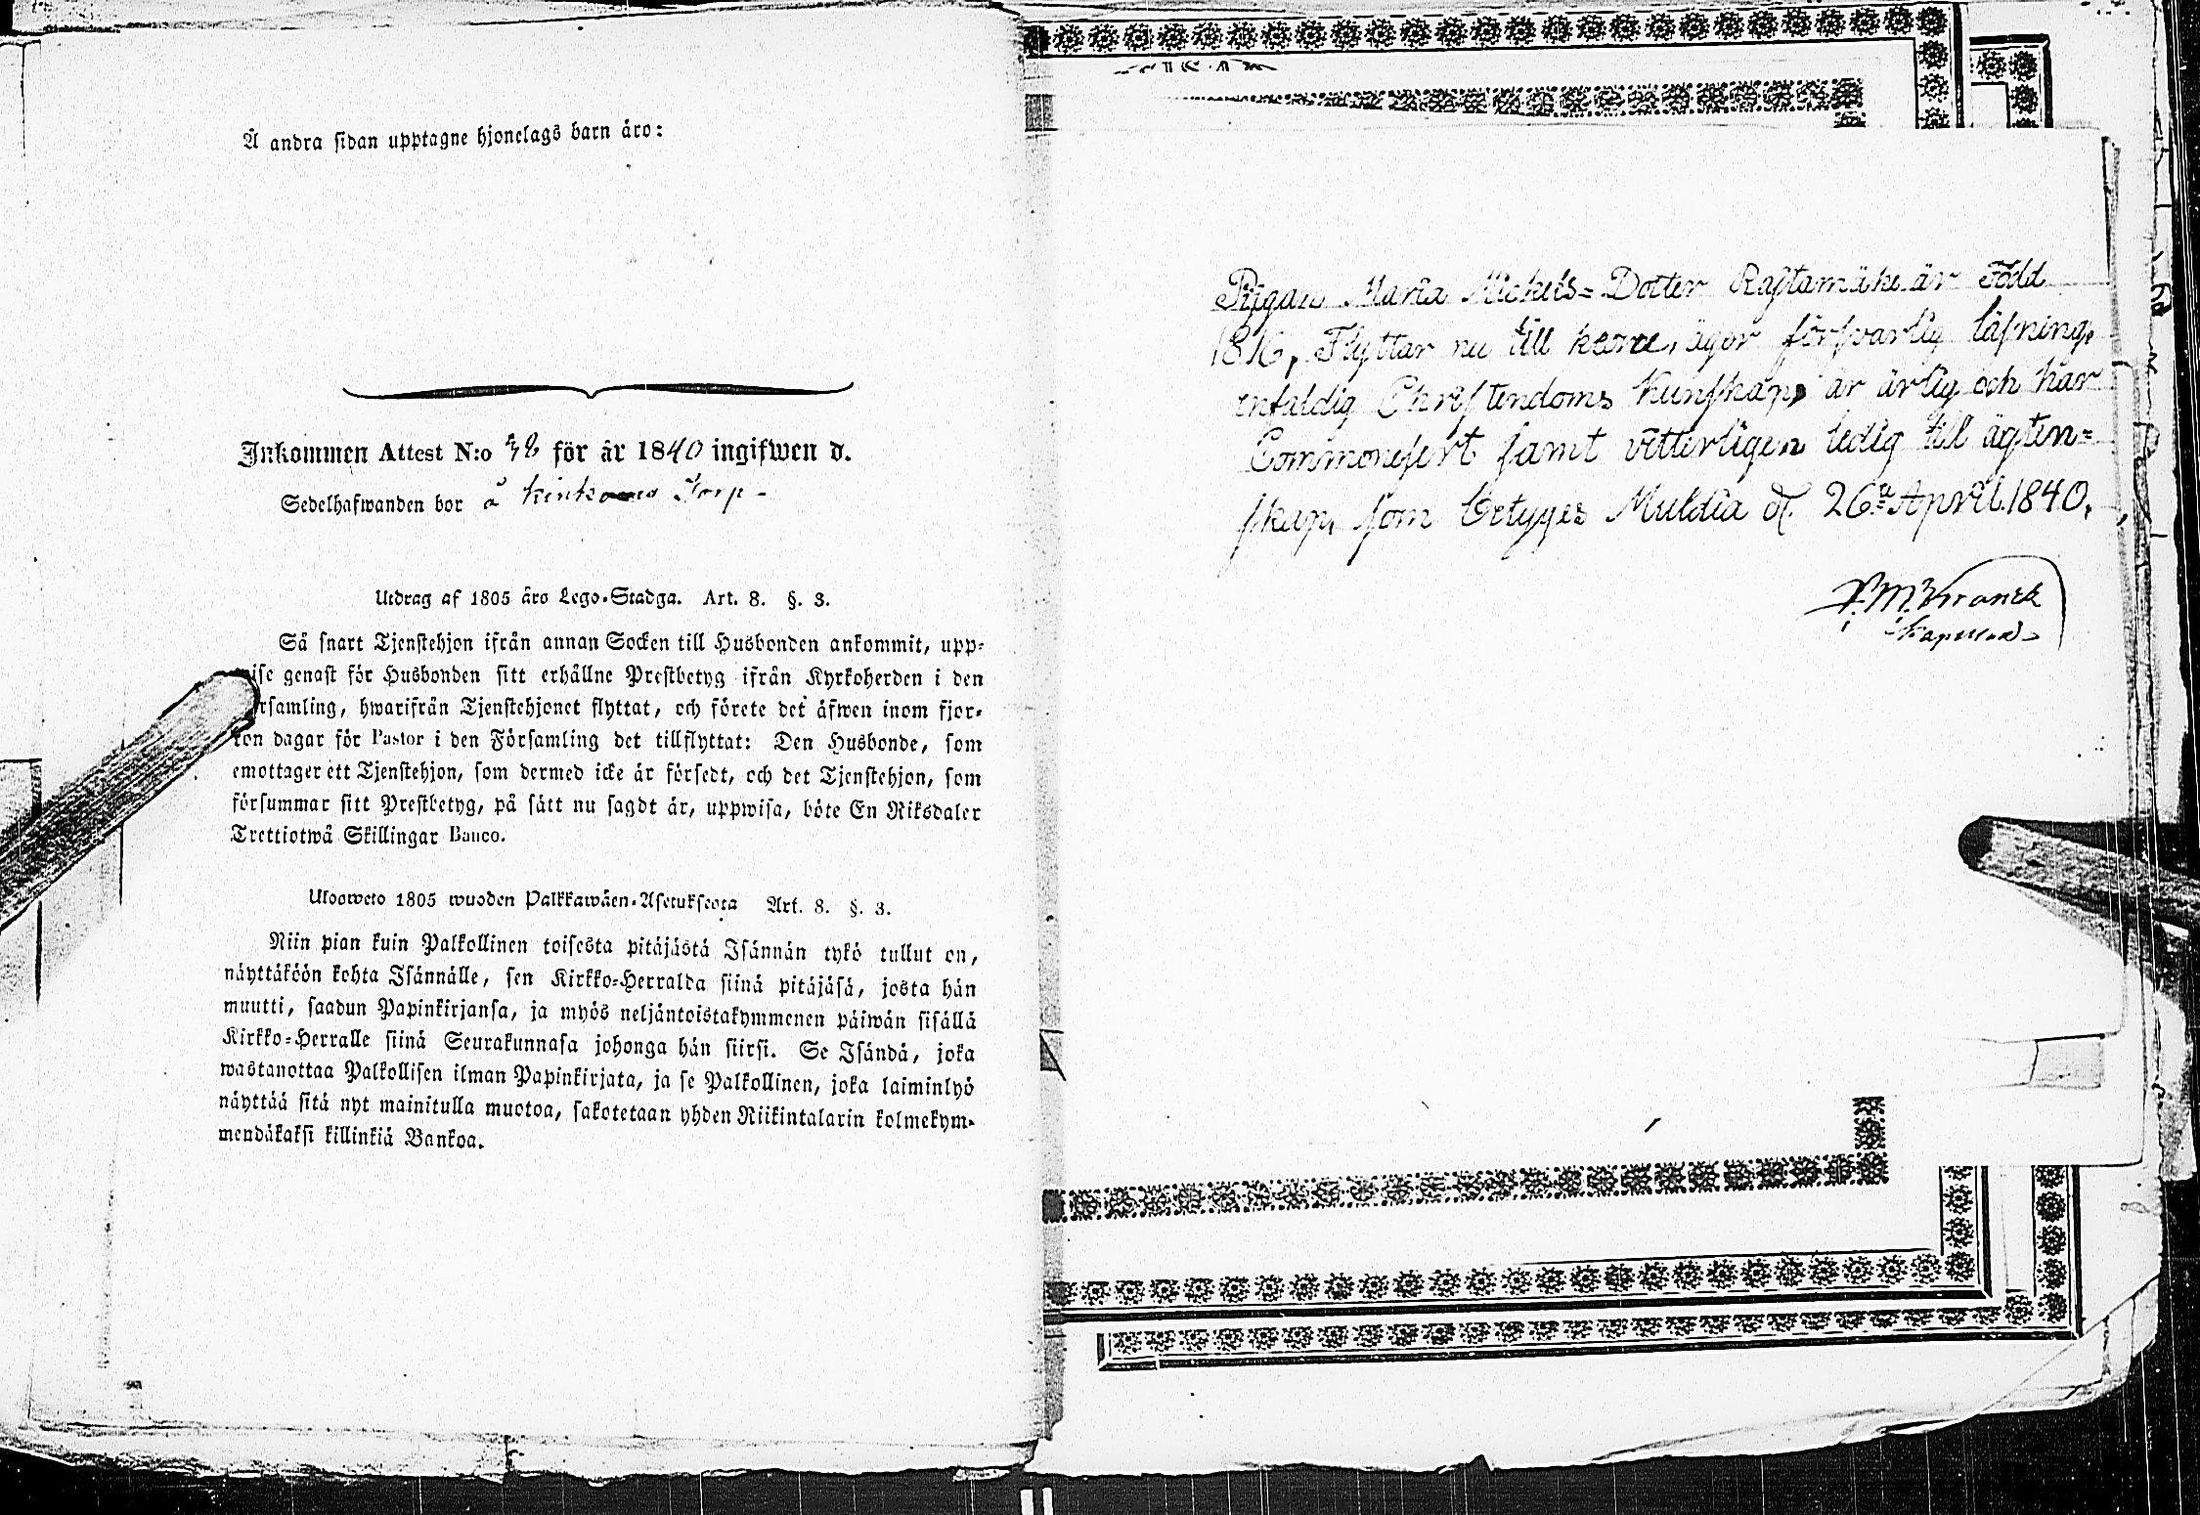 Å andra sidan upptagne hjonelags barn äro:
Inkommen Attest N:o för år 1840 ingifwen d.
Sedelhafwanden bor å Torp -
Utdrag af 1805 års Lego-Stadga. Art. 8. §. 3.
Så snart Tjenstehjon ifrån annan Socken till Husbonden ankommit, upp-
wise genast för Husbonden sitt erhållne Prestbetyg ifrån Kyrkoherden i den
Församling, hwarifrån Tjenstehjonet flyttat, och förete det äfwen inom fjor-
ton dagar för Pastor i den Församling det tillflyttat: Den Husbonde, som
emottager ett Tjenstehjon, som dermed icke är försedt, och det Tjenstehjon, som
försummar sitt Prestbetyg, på sätt nu sagdt är, uppwisa, böte En Riksdaler
Trettiotwå Skillingar Banco.
Ulosweto 1805 wuoden Palkkawäen-Asetuksesta Art. 8. §. 3.
Niin pian kuin Palkollinen toisesta pitäjästä Isännän tykö tullut on,
näyttäköön kohta Isännälle, sen Kirkko-Herralda siinä pitäjäsä, josta hän
muutti, saadun Papinkirjansa, ja myös neljäntoistakymmenen päiwän sisällä
Kirkko-Herralle siinä Seurakunnasa johonga hän siirsi. Se Isändä, joka
wastanottaa Palkollisen ilman Papinkirjata, ja se Palkollinen, joka laiminlyö
näyttää sitä nyt mainitulla muotoa, sakotetaan yhden Riikintalarin kolmekym-
mendäkaksi killinkiä Bankoa.
Pigan Maria Michels-Dotter Rajtamäki är Född
1816, Flyttar nu till äger försvarlig läsning,
enfaldig Christendoms Kunskap, är ärlig och har
Communicert samt vitterligen ledig till ägten-
skap, som betyges Muldia d. 26:a April 1840.
F. M. Kranck
Kapellan